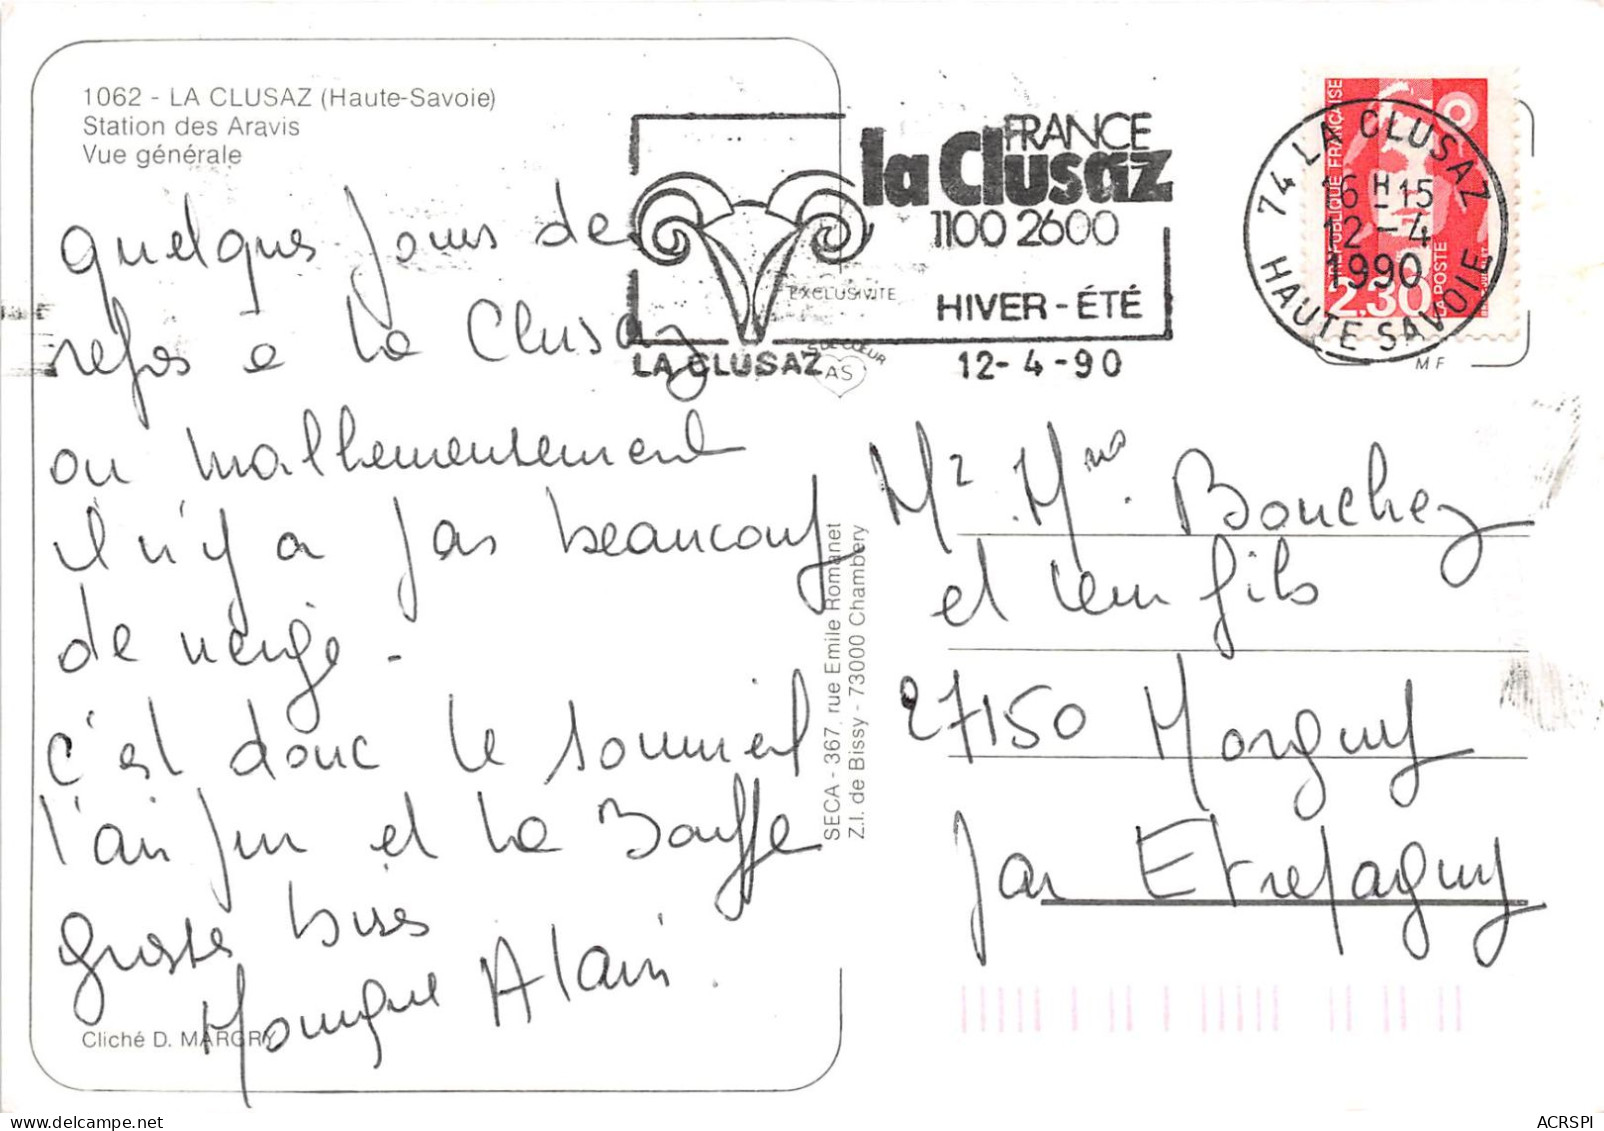 1062 - LA CLUSAZ (Haute-Savoie)
Station des Aravis
Vue générale
Quelques jours de
repos a la Clusaz
ou malheureusement
il n'y a pas beaucoup
de neige -
c'est donc le sommeil
l'air pur et la Bouffe
grosses bises
Monique Alain.
Cliché D. MARGRY
FRANCE
la Clusaz
1100 2600
HIVER - ÉTÉ
LA CLUSAZ
12-4-90
EXCLUSIVITE
S DE CŒUR
AS
SECA - 367, rue Emile Romanet
Z.I. de Bissy - 73000 Chambery
74 LA CLUSAZ
16 H 15
12-4
1990
HAUTE SAVOIE
REPUBLIQUE FRANÇAISE
LA POSTE
2.30
MF
Mr. Mme. Bouchez
et leur fils
27150 Morgny
par Etrepagny
ACRSPI